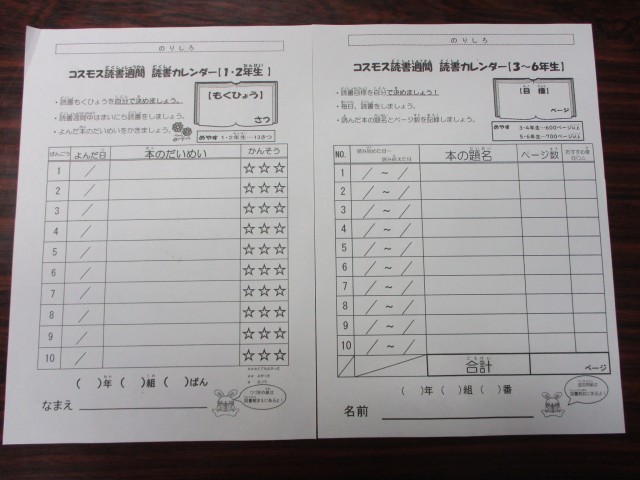 のりしろ
コスモス読書週間 読書カレンダー【1・2年生】
・読書もくひょうを自分で決めましょう。
・読書週間中はまいにち読書をしましょう。
・よんだ本のだいめいをかきましょう。
【もくひょう】
さつ
めやす 1・2年生…13さつ
ばんごう よんだ日 本のだいめい かんそう
1 / ☆☆☆
2 / ☆☆☆
3 / ☆☆☆
4 / ☆☆☆
5 / ☆☆☆
6 / ☆☆☆
7 / ☆☆☆
8 / ☆☆☆
9 / ☆☆☆
10 / ☆☆☆
( )年( )組( )ばん
なまえ
のりしろ
コスモス読書週間 読書カレンダー【3～6年生】
・読書目標を自分で決めましょう！
・毎日、読書をしましょう。
・読んだ本の題名とページ数を記録しましょう。
【目標】
ページ
めやす 3・4年生…600ページ以上
5・6年生…700ページ以上
NO. 読み始めた日～読み終えた日 本の題名 ページ数 おすすめ度◎○△
1 / ～ /
2 / ～ /
3 / ～ /
4 / ～ /
5 / ～ /
6 / ～ /
7 / ～ /
8 / ～ /
9 / ～ /
10 / ～ /
合計 ページ
( )年( )組( )番
名前